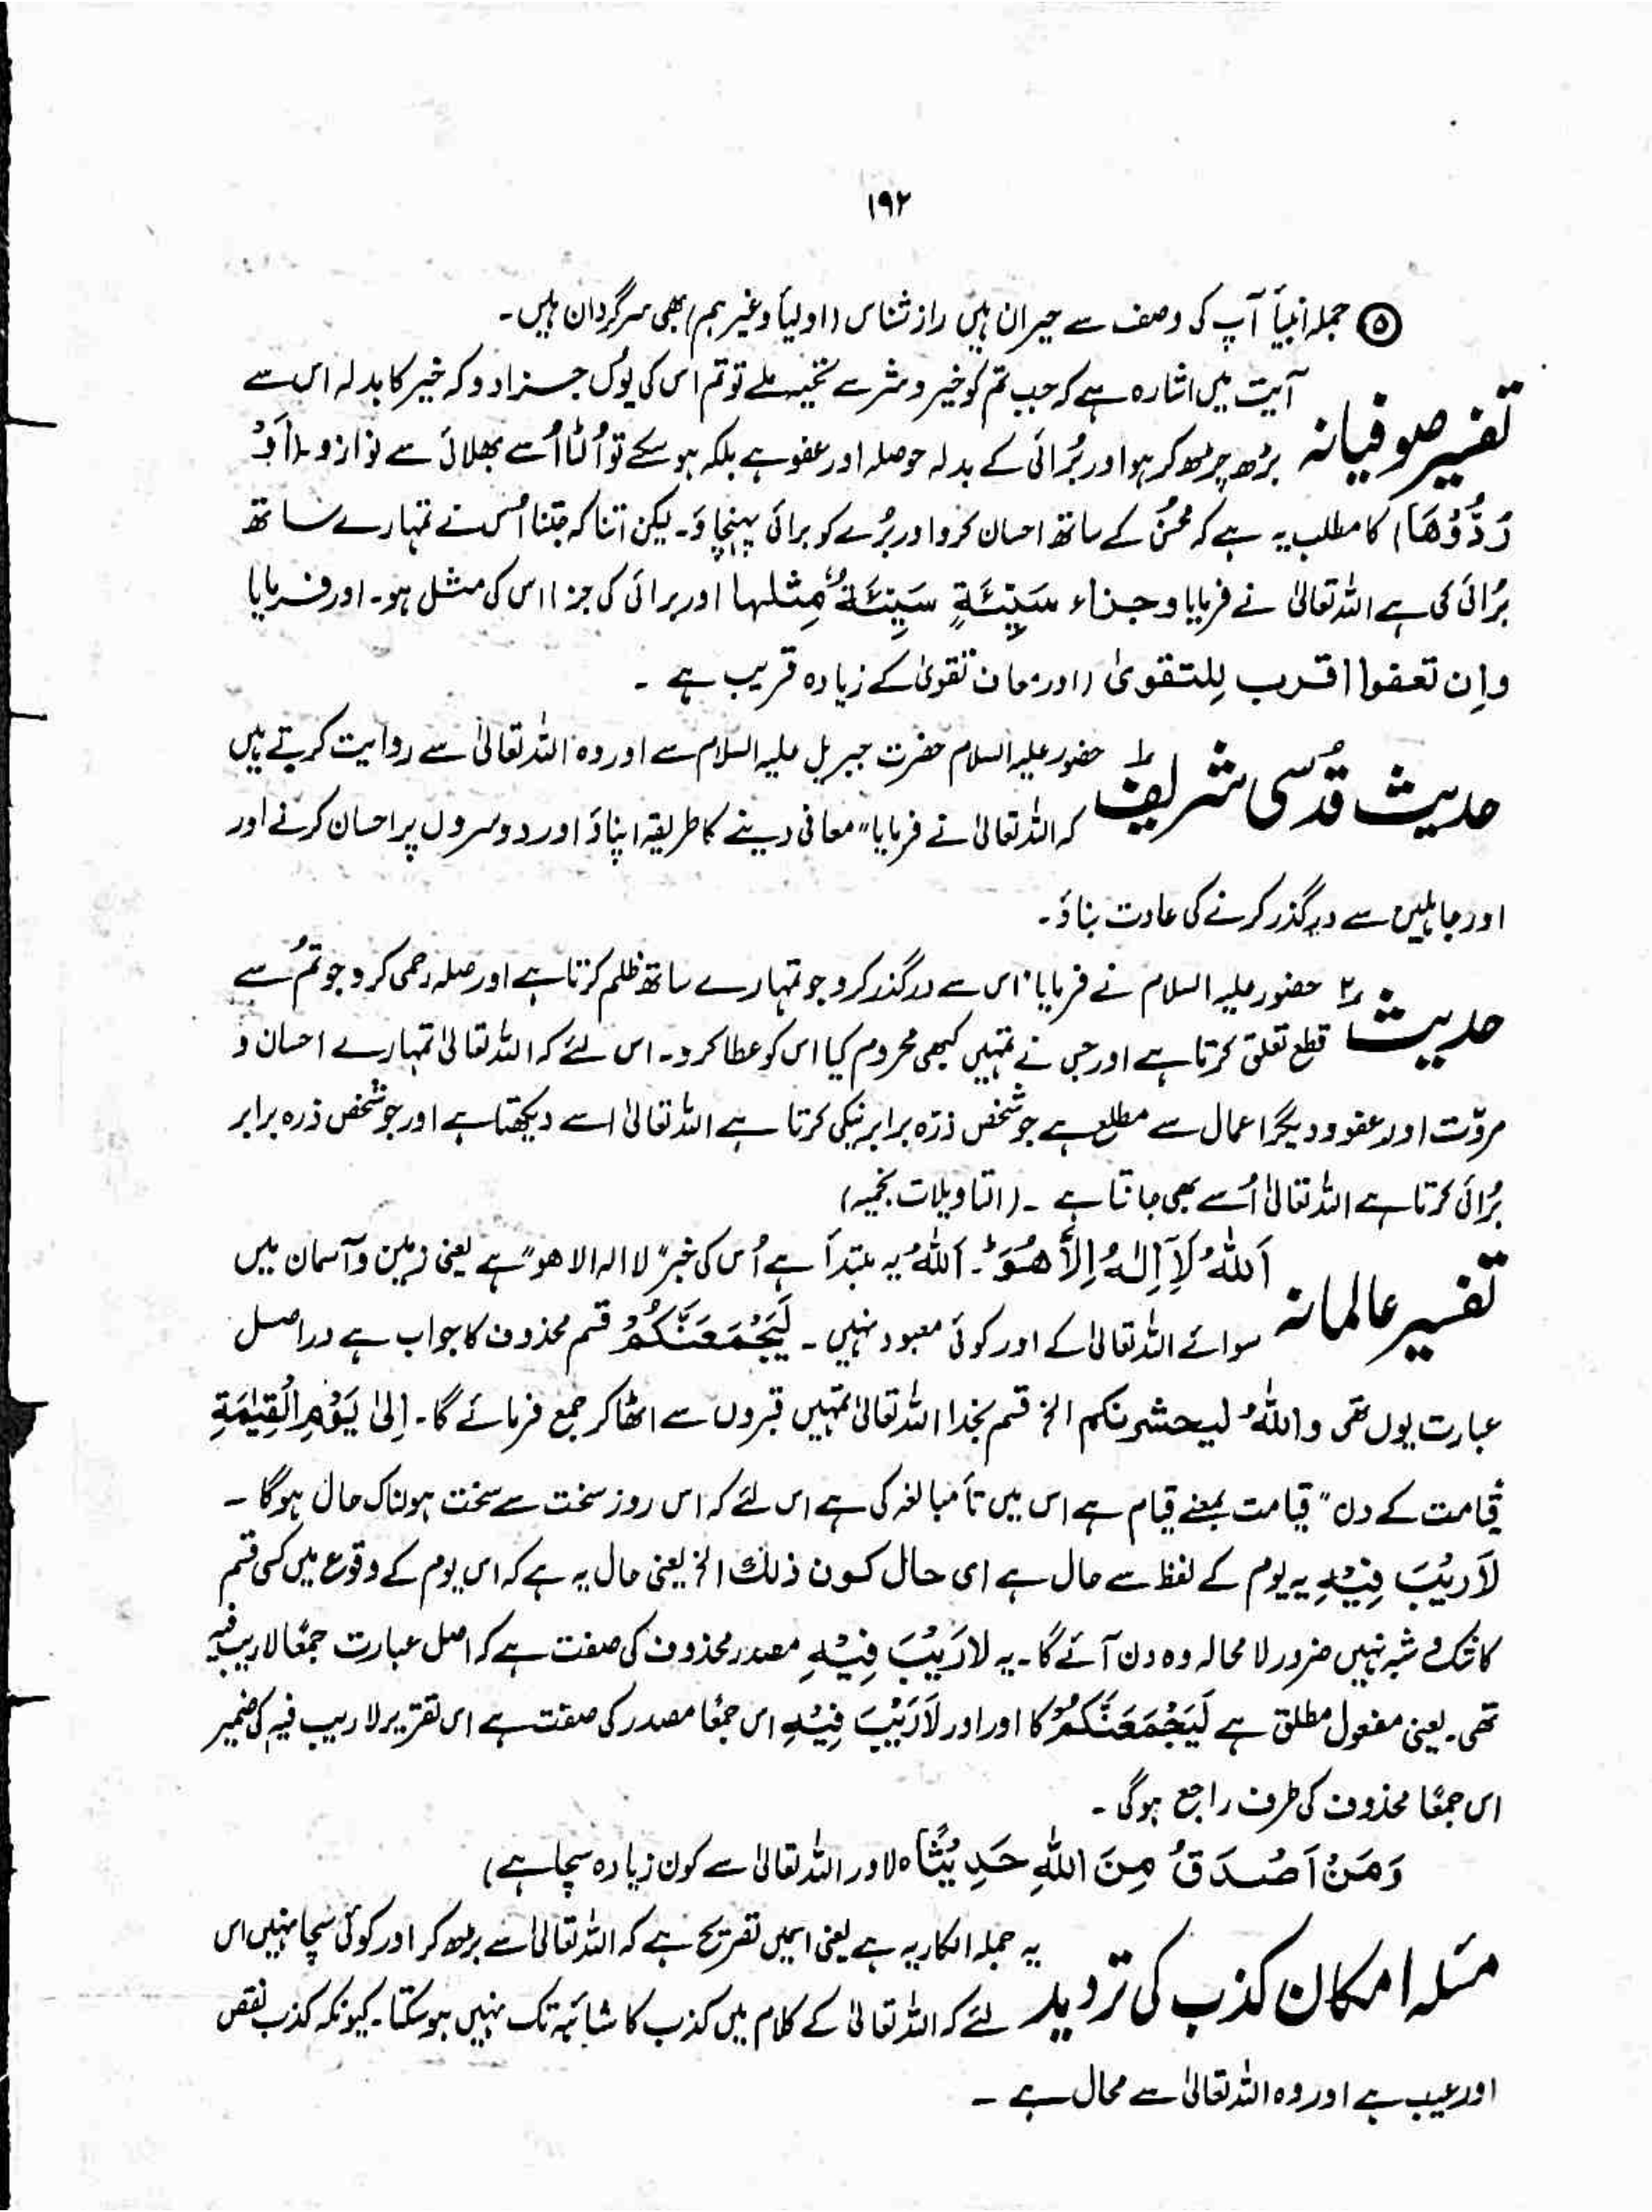 ۱۹۲
⑤ جملہ انبیأ آپ کی وصف سے حیران ہیں راز شناس (اولیأ وغیرہم) بھی سرگردان ہیں۔
تفسیر صوفیانہ آیت میں اشارہ ہے کہ جب تم کو خیر و شر سے تحیہ ملے تو تم اس کی یوُں جزا دو کہ خیر کا بدلہ اس سے
بڑھ چڑھ کر ہو اور بُرائی کے بدلہ حوصلہ اور عفو ہے بلکہ ہو سکے تو اُلٹا اُسے بھلائی سے نوازو۔ (اَوْ
رُدُّوْھَا) کا مطلب یہ ہے کہ محسنُ کے ساتھ احسان کرو اور بُرے کو برائی پہنچاؤ۔ لیکن اتنا کہ جتنا اُس نے تمہارے ساتھ
بُرائی کی ہے اللہ تعالیٰ نے فرمایا وجزاء سَیِّئَۃٍ سَیِّئَۃٌ مِثلہا اور برائی کی جزا اس کی مثل ہو۔ اور فرمایا
وان تعفوا اقرب للتقویٰ (اور معاف تقویٰ کے زیادہ قریب ہے ۔
حدیث قدُسی شریف ۱ حضور علیہ السلام حضرت جبریل علیہ السلام سے اور وہ اللہ تعالیٰ سے روایت کرتے ہیں
کہ اللہ تعالیٰ نے فرمایا "معافی دینے کا طریقہ اپناؤ اور دوسروں پر احسان کرنے اور
اور جاہلین سے درگذر کرنے کی عادت بناؤ۔
حدیث ۲ حضور علیہ السلام نے فرمایا "اس سے درگذر کرو جو تمہارے ساتھ ظلم کرتا ہے اور صلہ رحمی کرو جو تمُ سے
قطع تعلق کرتا ہے اور جس نے تمہیں کبھی محروم کیا اس کو عطا کرو۔ اس لئے کہ اللہ تعالیٰ تمہارے احسان و
مروّت اور عفو و دیگر اعمال سے مطلع ہے جو شخص ذرّہ برابر نیکی کرتا ہے اللہ تعالیٰ اسے دیکھتا ہے اور جو شخص ذرہ برابر
بُرائی کرتا ہے اللہ تعالیٰ اُسے بھی جانتا ہے ۔ (التاویلات نجمیہ)
تفسیر عالمانہ اَللّٰہُ لَآ اِلٰہَ اِلَّا ھُوَ ؕ۔ اَللّٰہُ یہ مبتدأ ہے اُس کی خبر "لا الہ الا ھو" ہے یعنی زمین و آسمان میں
سوائے اللہ تعالیٰ کے اور کوئی معبود نہیں ۔ لَیَجْمَعَنَّکُمْ قسم محذوف کا جواب ہے دراصل
عبارت یوں تھی واللّٰہُ لیحشرنکم الخ قسم بخدا اللہ تعالیٰ تمہیں قبروں سے اٹھا کر جمع فرمائے گا۔ اِلٰی یَوْمِ الْقِیٰمَۃِ
قیامت کے دن" قیامت بمعنے قیام ہے اس میں تأ مبالغہ کی ہے اس لئے کہ اس روز سخت سے سخت ہولناک حال ہوگا ۔
لَا رَیْبَ فِیْہِ یہ یوم کے لفظ سے حال ہے ای حال کون ذلک الخ یعنی حال یہ ہے کہ اس یوم کے وقوع میں کسی قسم
کا شک و شبہ نہیں ضرور لا محالہ وہ دن آئے گا۔ یہ لا رَیْبَ فِیْہِ مصدر محذوف کی صفت ہے کہ اصل عبارت جمعًا لا ریب فیہ
تھی۔ یعنی مفعول مطلق ہے لَیَجْمَعَنَّکُمْ کا اور اور لَا رَیْبَ فِیْہِ اس جمعًا مصدر کی صفت ہے اس تقریر لا ریب فیہ کی ضمیر
اس جمعًا محذوف کی طرف راجع ہوگی ۔
وَمَنْ اَصْدَقُ مِنَ اللّٰہِ حَدِیْثًا ہ (اور اللہ تعالیٰ سے کون زیادہ سچا ہے)
مسٔلہ امکان کذب کی تردید یہ جملہ انکاریہ ہے یعنی اسمیں تصریح ہے کہ اللہ تعالیٰ سے بڑھ کر اور کوئی سچا نہیں اس
لئے کہ اللہ تعالیٰ کے کلام میں کذب کا شائبہ تک نہیں ہو سکتا۔ کیونکہ کذب نقص
اور عیب ہے اور وہ اللہ تعالیٰ سے محال ہے ۔